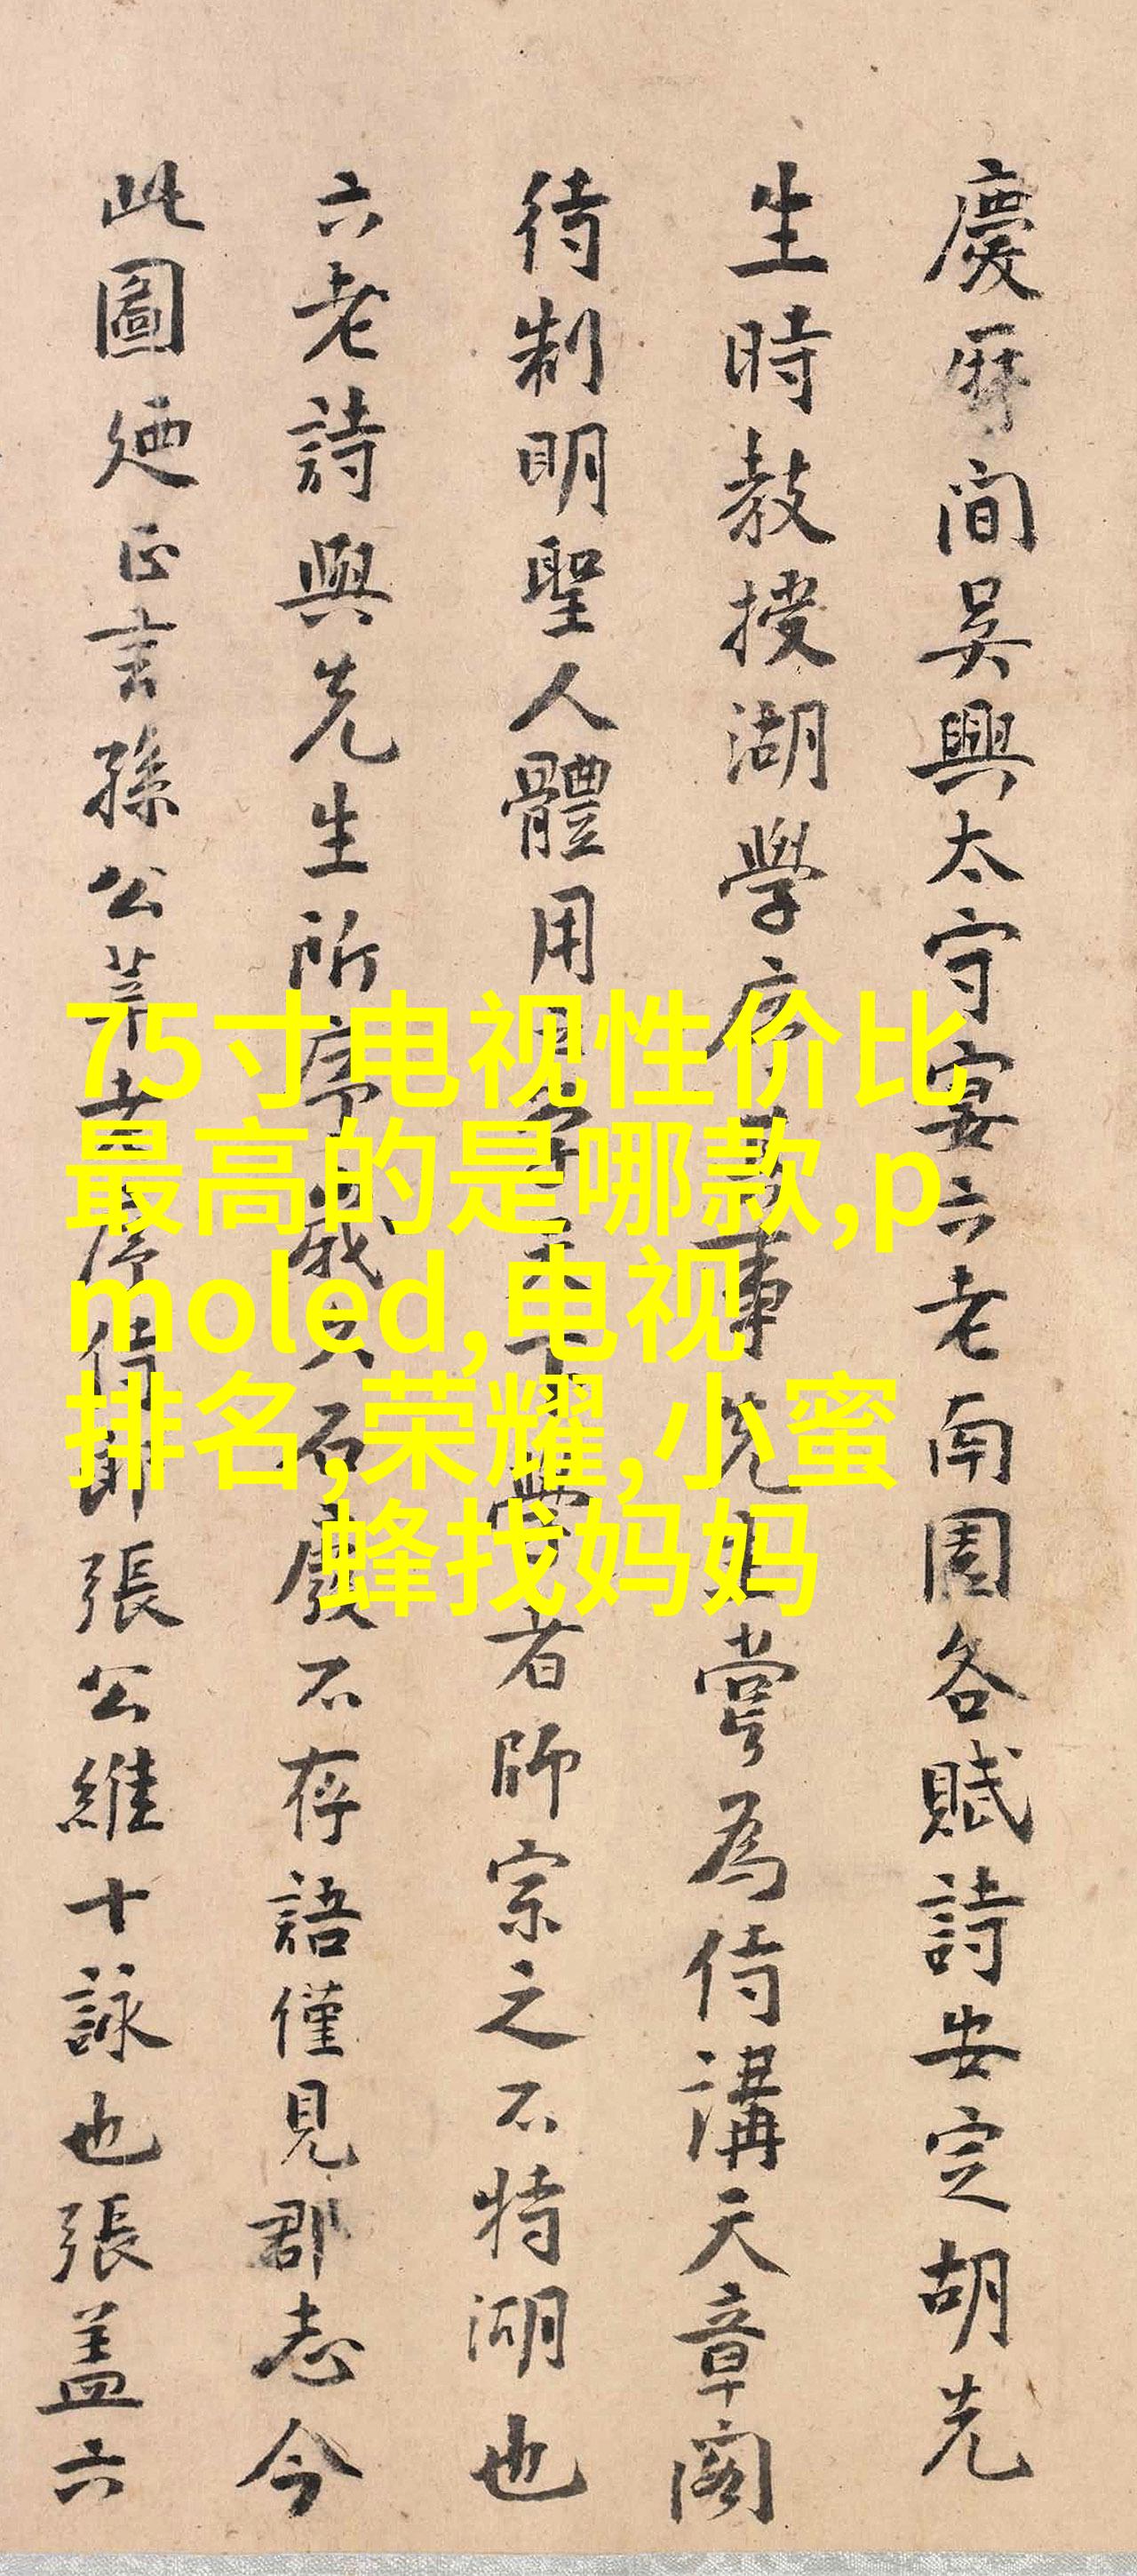 慶曆間吳興太守宴六老南園各賦詩安定胡先
生時教授湖學序其事先生嘗為侍講天章閣
待制明聖人體用之學天下學者師宗之不特湖也
六老詩與先生所序載之石廢不存語僅見郡志今
此圖廼正言孫公莘老序侍郎張公維十詠也張蓋六
75寸电视性价比
最高的是哪款,p
moled,电视
排名,荣耀,小蜜
蜂找妈妈